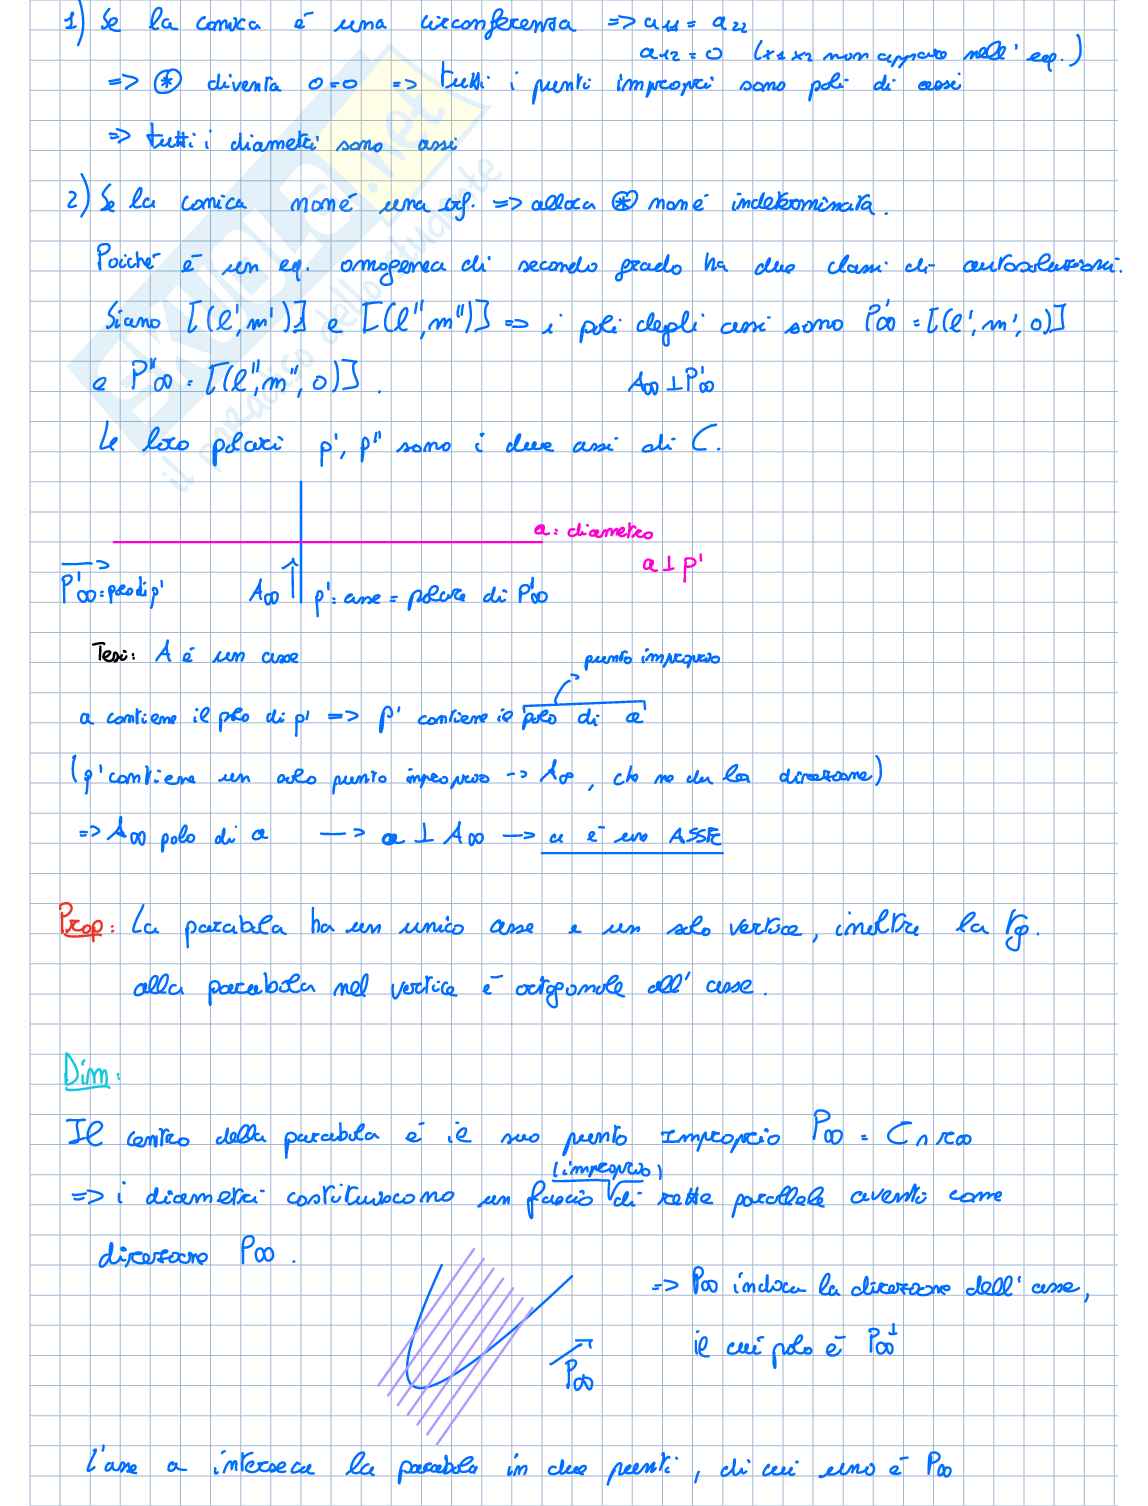 1) Se la conica è una circonferenza => a₁₁ = a₂₂
a₁₂ = 0 (x₁x₂ non appare nell' eq.)
=> ⊛ diventa 0=0 => tutti i punti impropri sono poli di assi
=> tutti i diametri sono assi
2) Se la conica non è una crf. => allora ⊛ non è indeterminata.
Poiché è un eq. omogenea di secondo grado ha due classi di autosoluzioni.
Siano [(l', m')] e [(l'', m'')] => i poli degli assi sono P'∞ = [(l', m', 0)]
e P''∞ = [(l'', m'', 0)].
A∞ ⊥ P'∞
Le loro polari p', p'' sono i due assi di C.
a: diametro
a ⊥ p'
P'∞ = polo di p'
A∞
p': asse = polare di P'∞
Tesi: A è un asse
punto improprio
a contiene il polo di p' => p' contiene il polo di a
(p' contiene un solo punto improprio -> A∞, che ne da la direzione)
=> A∞ polo di a -> a ⊥ A∞ -> a è un ASSE
Prop: La parabola ha un unico asse e un solo vertice, inoltre la tg.
alla parabola nel vertice è ortogonale all' asse.
Dim:
Il centro della parabola è il suo punto improprio P∞ = C ∩ r∞
(improprio)
=> i diametri costituiscono un fascio di rette parallele aventi come
direzione P∞.
=> P∞ indica la direzione dell' asse,
il cui polo è P∞⊥
P∞
L'asse a interseca la parabola in due punti, di cui uno è P∞
SKUOLA.net
il paradiso dello studente